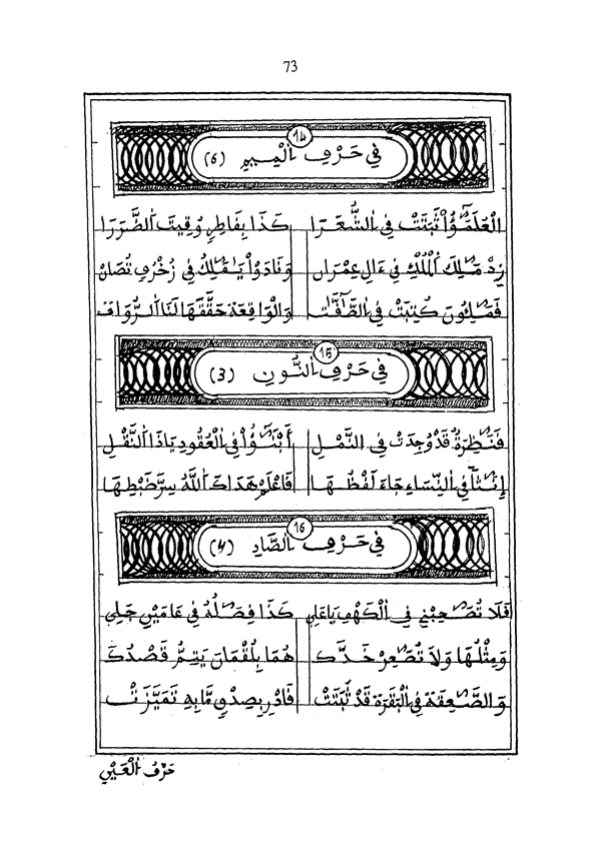 73
14
في حَرْفِ اَلْمِيمِ (6)
اَلْعُلَمَٰٓؤُاْ ثَبَتَتْ فِي اِلشُّعَرَا كَذَا بِفَاطِرٍ وُقِيتَ اَلضَّرَرَا
زِدْ مَٰلِكَ اَلْمُلْكِ فِي ءَالِ عِمْرَان وَنَادَوْاْ يَٰمَٰلِكُ فِي زُخْرُفٍ تُصَانْ
فَمَٰلِـُٔونَ كُتِبَتْ فِي الصَّآفَّٰتْ وَالْوَاقِعَة حَقَّقَهَا لَنَا اَلرُّوَاة
15
في حَرْفِ اَلنُّونِ (3)
فَنَٰظِرَةٌ قَدْ وُجِدَتْ فِي النَّمْلِ أَبْنَٰٓؤُاْ فِي اَلْعُقُودِ يَاذَا اَلنَّقْلِ
إِنَٰثاً فِي اَلنِّسَاءِ جَاءَ لَفْظُهَا فَاعْلَمْ هَدَاكَ اَللَّهُ سِرَّ ضَبْطِهَا
16
في حَرْفِ اَلصَّادِ (4)
فَلَا تُصَٰحِبْنِي فِي اِلْكَهْفِ يَاعَلِي كَذَا فِصَٰلُهُ فِي عَامَيْنِ جَلِي
وَمِثْلُهَا وَلَا تُصَٰعِرْ خَدَّكَ هُمَا بِلُقْمَانَ يَتِمُّ قَصْدُكَ
وَالصَّٰعِقَة فِي اِلْبَقَرَة قَدْ ثَبَتَتْ فَادْرِ بِصِدْقٍ مَّا بِهِ تَمَيَّزَتْ
حَرْفُ اَلْعَيْنِ